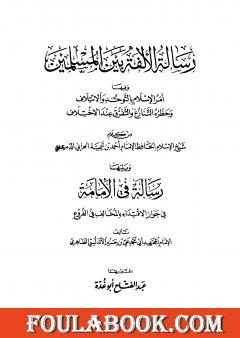 رسالة الألفة بين المسلمين
وفيها
أمر الإسلام بالتوحد والائتلاف
وحظره التنازع والتفرق عند الاختلاف
من كلام
شيخ الإسلام الحافظ الإمام أحمد بن تيمية الحراني الدمشقي
ويليها
رسالة في الإمامة
في جواز الاقتداء بالمخالف في الفروع
تأليف
الإمام المجتهد أبي محمد علي بن حزم الأندلسي الظاهري
اعتنى بهما
عبد الفتاح أبو غدة
FOULABOOK.COM